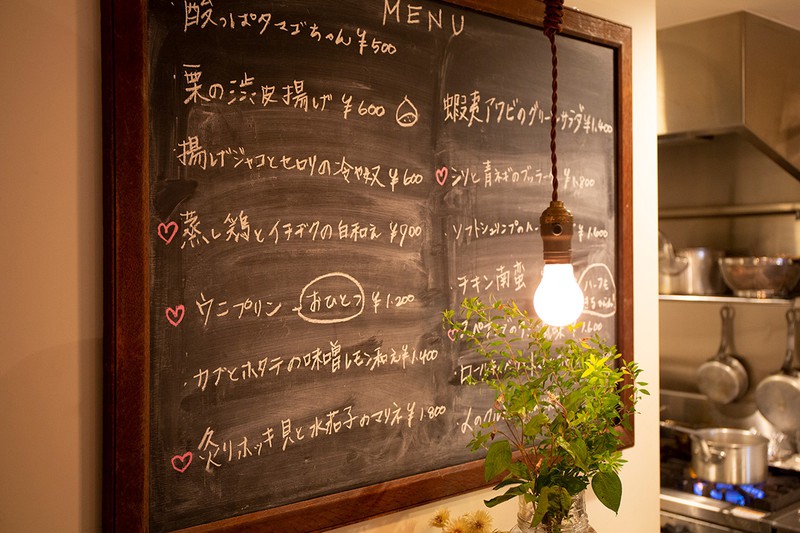 MENU
酸っぱタマゴちゃん ¥500
・栗の渋皮揚げ ¥600
・揚げジャコとセロリの冷やっ奴 ¥600
・蒸し鶏とイチヂクの白和え ¥900
・ウニプリン おひとつ ¥1.200
・カブとホタテの味噌レモン和え ¥1.400
・炙りホッキ貝と水茄子のマリネ ¥1.800
蝦夷アワビのグリーンサラダ ¥1.400
・シソと青ネギの ¥1.800
・ソフトシュリンプの
・チキン南蛮 ハーフも